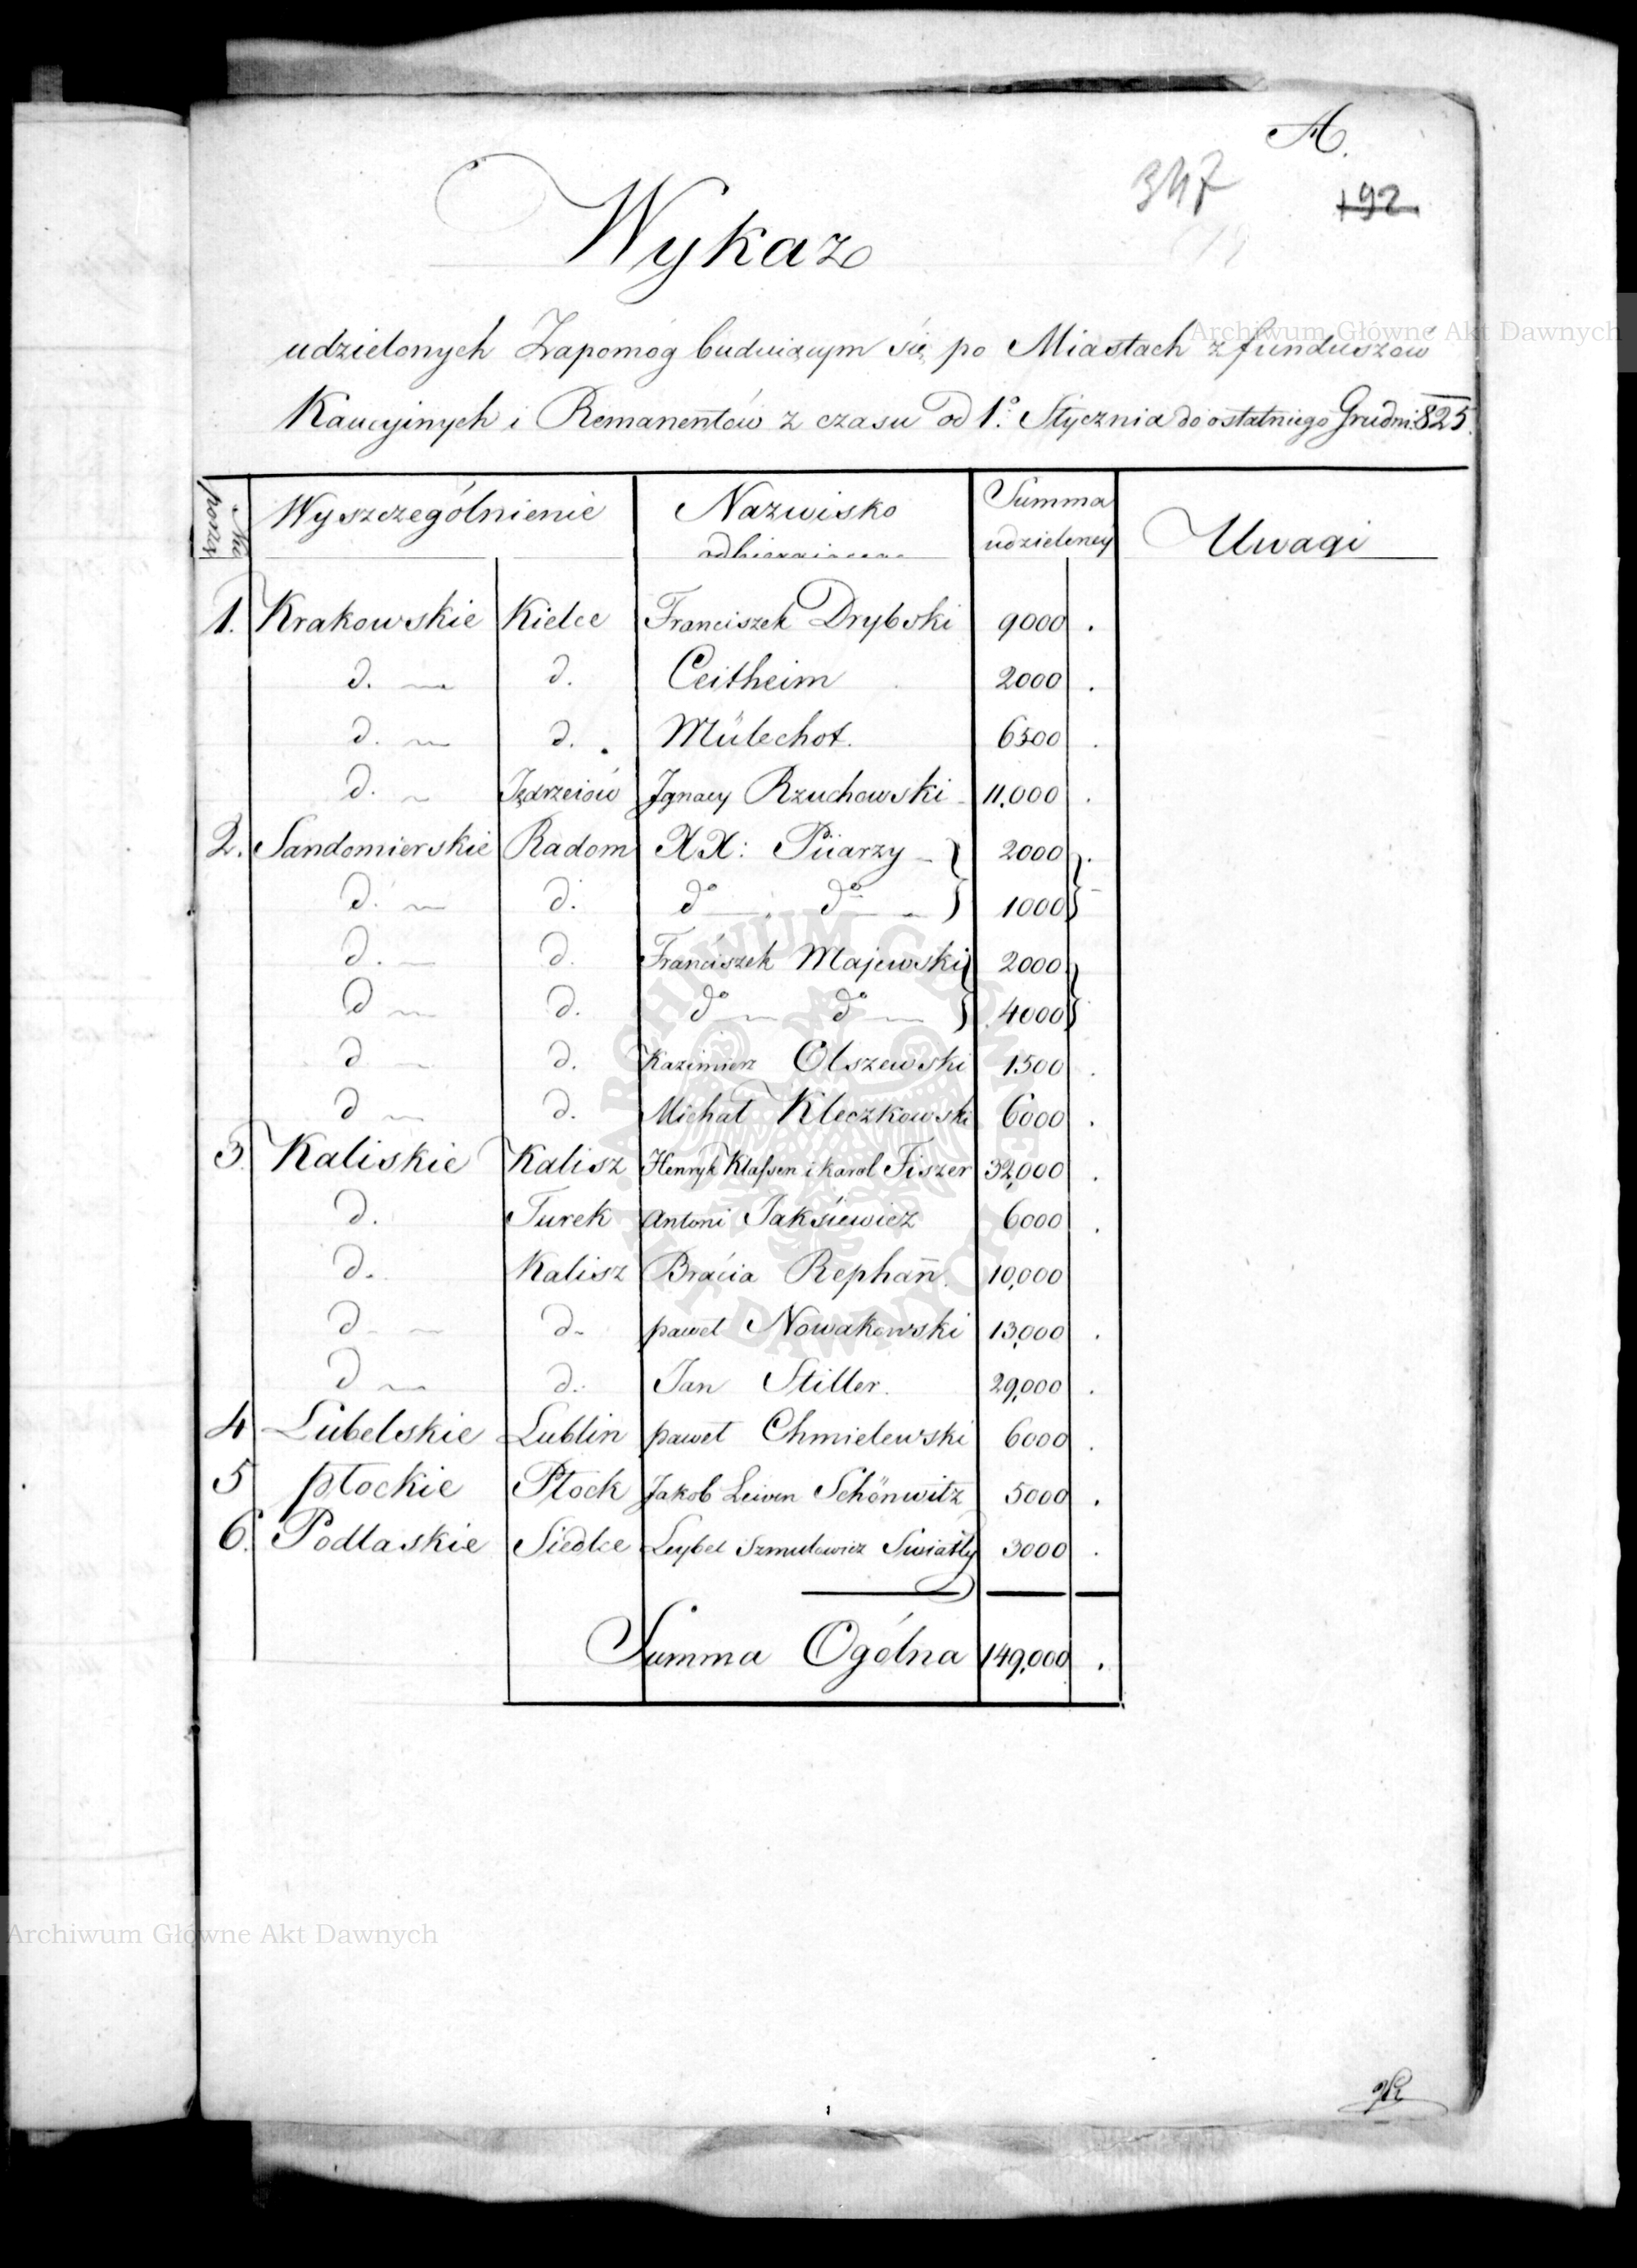 A.
347
192
Wykaz
udzielonych Zapomog buduiącym się po Miastach z funduszów
Kaucyinych i Remanentów z czasu od 1º Stycznia do ostatniego Grudni: 825.
Nr porzą
Wyszczególnienie
Nazwisko odbieraiącego
Summa udzieloney
Uwagi
1. Krakowskie Kielce Franciszek Drybski 9000 .
d. d. Ceitheim 2000 .
d. d. Mülechot. 6500 .
d. Jędrzeiów Jgnacy Rzuchowski 11,000 .
2. Sandomierskie Radom XX: Piiarzy } 2000 } .
d. d. dº dº } 1000 }
d. d. Franciszek Majewski } 2000 }
d d. dº dº } 4000 }
d d. Kazimierz Olszewski 1500 .
d d. Michał Kleczkowski 6000 .
3. Kaliskie Kalisz Henryk Klassen i Karol Fiszer 32,000 .
d. Turek Antoni Jaksiewicz 6000 .
d. Kalisz Bracia Rephan̄. 10,000
d d. paweł Nowakowski 13,000 .
d d. Jan Stiller. 29,000 .
4 Lubelskie Lublin paweł Chmielewski 6000 .
5 płockie Płock Jakob Leiven Schönwitz 5000 .
6. Podlaskie Siedlce Leybel Szmulowicz Swiatły 3000 .
Summa Ogólna 149,000 .
Archiwum Główne Akt Dawnych
Archiwum Główne Akt Dawnych
ARCHIWUM GŁÓWNE AKT DAWNYCH